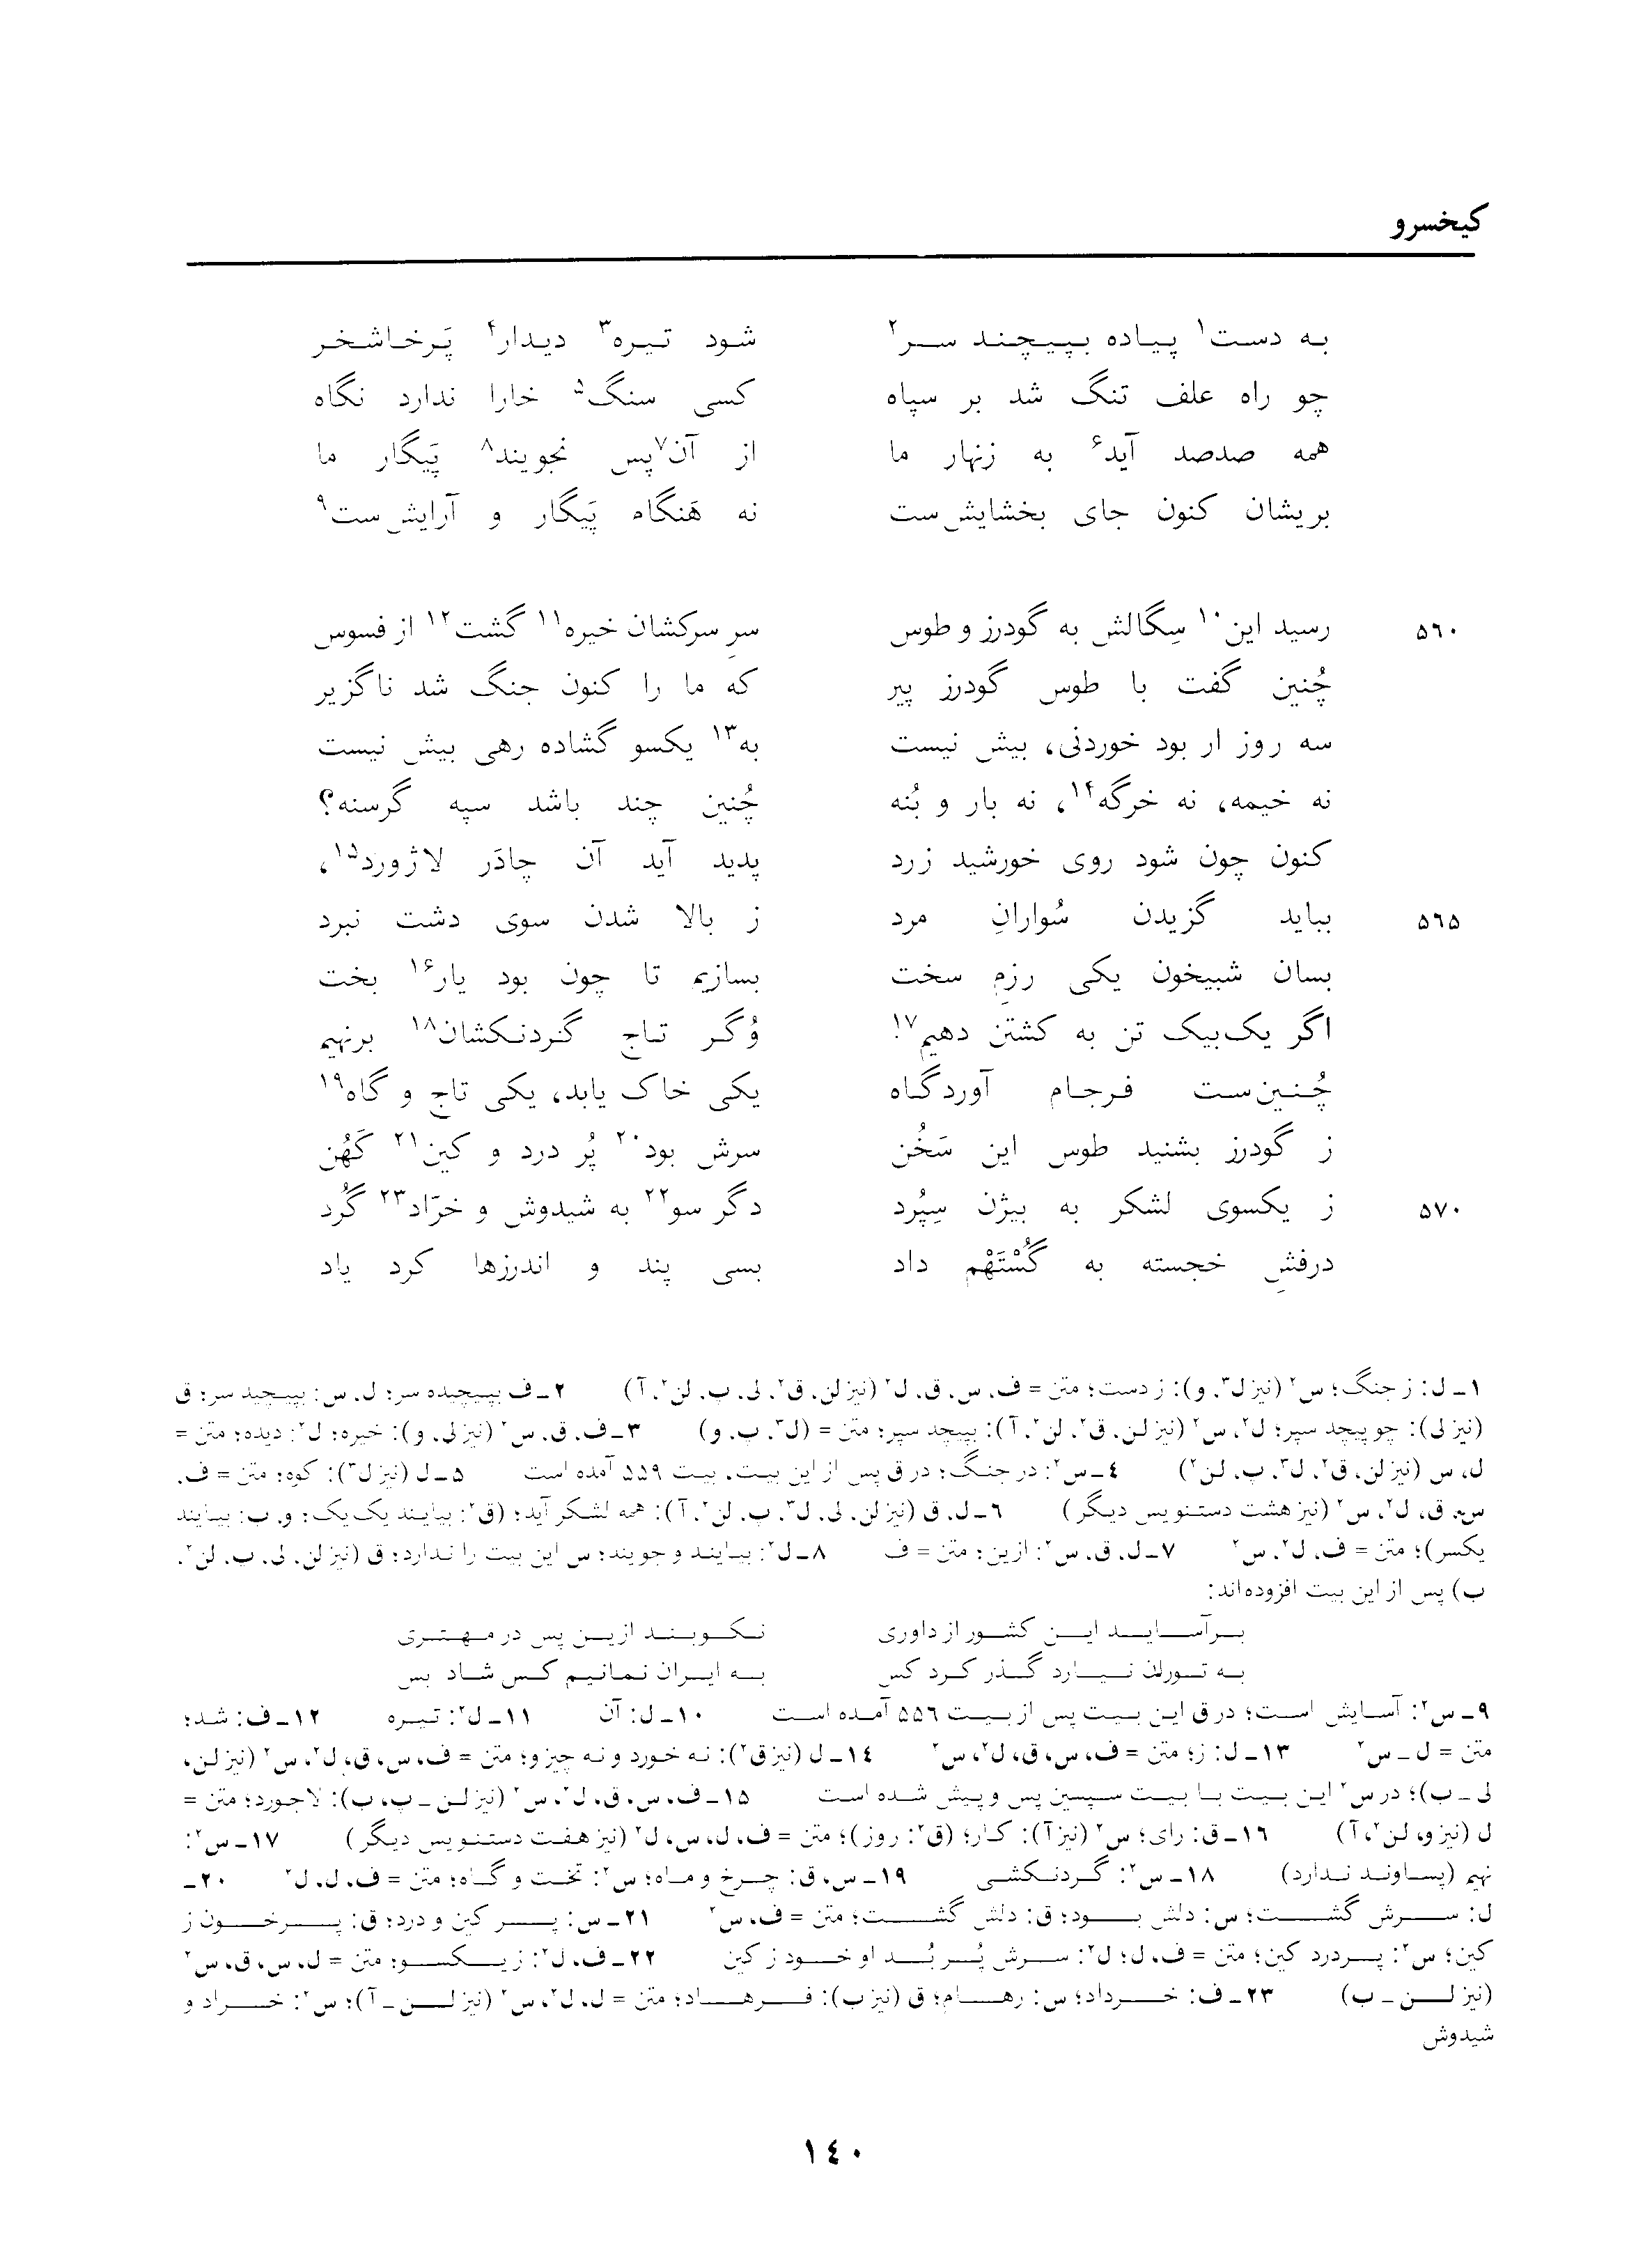 کیخسرو
به دست۱ پیاده بپیچند سر۲ شود تیره۳ دیدار۴ پَرخاشخر
چو راه علف تنگ شد بر سپاه کسی سنگ۵ خارا ندارد نگاه
همه صدصد آید۶ به زنهار ما از آن۷پس نجویند۸ پَیگار ما
بریشان کنون جای بخشایش‌ست نه هَنگاه پَیگار و آرایش‌ست۹
۵۶۰ رسید این۱۰ سِگالش به گودرز و طوس سرِ سرکشان خیره۱۱ گشت۱۲ از فسوس
چُنین گفت با طوس گودرز پیر که ما را کنون جنگ شد ناگزیر
سه روز ار بود خوردنی، بیش نیست به۱۳ یکسو گشاده رهی بیش نیست
نه خیمه، نه خرگه۱۴، نه بار و بُنه چُنین چند باشد سپه گرسنه؟
کنون چون شود روی خورشید زرد پدید آید آن چادَر لاژورد۱۵،
۵۶۵ بباید گزیدن سُوارانِ مرد ز بالا شدن سوی دشت نبرد
بسان شبیخون یکی رزمِ سخت بسازیم تا چون بود یار۱۶ بخت
اگر یک‌بیک تن به کشتن دهیم۱۷! وُگر تاج گردنکشان۱۸ برنهیم
چُنین‌ست فرجام آوردگاه یکی خاک یابد، یکی تاج و گاه۱۹
ز گودرز بشنید طوس این سَخُن سرش بود۲۰ پُر درد و کین۲۱ کَهُن
۵۷۰ ز یکسوی لشکر به بیژن سِپُرد دگر سو۲۲ به شیدوش و خرّاد۲۳ گُرد
درفشِ خجسته به گُسْتَهْم داد بسی پند و اندرزها کرد یاد
۱ـ ل: ز جنگ؛ س۲ (نیز ل۳، و): ز دست؛ متن = ف، س، ق، ل۲ (نیز لن، ق۲، لی، پ، لن۲، آ) ۲ـ ف بپیچیده سر؛ ل، س: بپیچید سر؛ ق
(نیز لی): چو پیچد سپر؛ ل۲، س۲ (نیز لن، ق۲، لن۲، آ): بپیچد سپر؛ متن = (ل۳، ب، و) ۳ـ ف، ق، س۲ (نیز لی، و): خیره؛ ل۲: دیده؛ متن =
ل، س (نیز لن، ق۲، ل۳، پ، لن۲) ٤ـ س۲: در جنگ؛ در ق پس از این بیت، بیت ۵۵۹ آمده است ۵ـ ل (نیز ل۳): کوه؛ متن = ف،
س، ق، ل۲، س۲ (نیز هشت دستنویس دیگر) ۶ـ ل، ق (نیز لن، لی، ل۳، پ، لن۲، آ): همه لشکر آید؛ (ق۲: بیایند یک یک؛ و، ب: بیایند
یکسر)؛ متن = ف، ل۲، س۲ ۷ـ ل، ق، س۲: ازین؛ متن = ف ۸ـ ل۲: بیایند و جویند؛ س این بیت را ندارد؛ ق (نیز لن، لی، پ، لن۲،
ب) پس از این بیت افزوده‌اند:
برآساید این کشور از داوری نکوبند ازین پس در مهتری
به توران نیارد گذر کرد کس به ایران نمانیم کس شاد بس
۹ـ س۲: آسایش است؛ در ق این بیت پس از بیت ۵۵۶ آمده است ۱۰ـ ل: آن ۱۱ـ ل۲: تیره ۱۲ـ ف: شد؛
متن = ل ـ س۲ ۱۳ـ ل: ز؛ متن = ف، س، ق، ل۲، س۲ ۱٤ـ ل (نیز ق۲): نه خورد و نه چیز و؛ متن = ف، س، ق، ل۲، س۲ (نیز لن،
لی ـ ب)؛ در س۲ این بیت با بیت سپسین پس و پیش شده است ۱۵ـ ف، س، ق، ل۲، س۲ (نیز لن ـ پ، ب): لاجورد؛ متن =
ل (نیز و، لن۲، آ) ۱۶ـ ق: رای؛ س۲ (نیز آ): کار؛ (ق۲: روز)؛ متن = ف، ل، س، ل۲ (نیز هفت دستنویس دیگر) ۱۷ـ س۲:
نهیم (پساوند ندارد) ۱۸ـ س۲: گردنکشی ۱۹ـ س، ق: چرخ و ماه؛ س۲: تخت و گاه؛ متن = ف، ل، ل۲ ۲۰ـ
ل: سرش گشت؛ س: دلش بود؛ ق: دلش گشت؛ متن = ف، س۲ ۲۱ـ س: پر کین و درد؛ ق: پرخون ز
کین؛ س۲: پردرد کین؛ متن = ف، ل؛ ل۲: سرش پُر بُد او خود ز کین ۲۲ـ ف، ل۲: ز یکسو؛ متن = ل، س، ق، س۲
(نیز لن ـ ب) ۲۳ـ ف: خرداد؛ س: رهام؛ ق (نیز ب): فرهاد؛ متن = ل، ل۲، س۲ (نیز لن ـ آ)؛ س۲: خراد و
شیدوش
۱٤۰